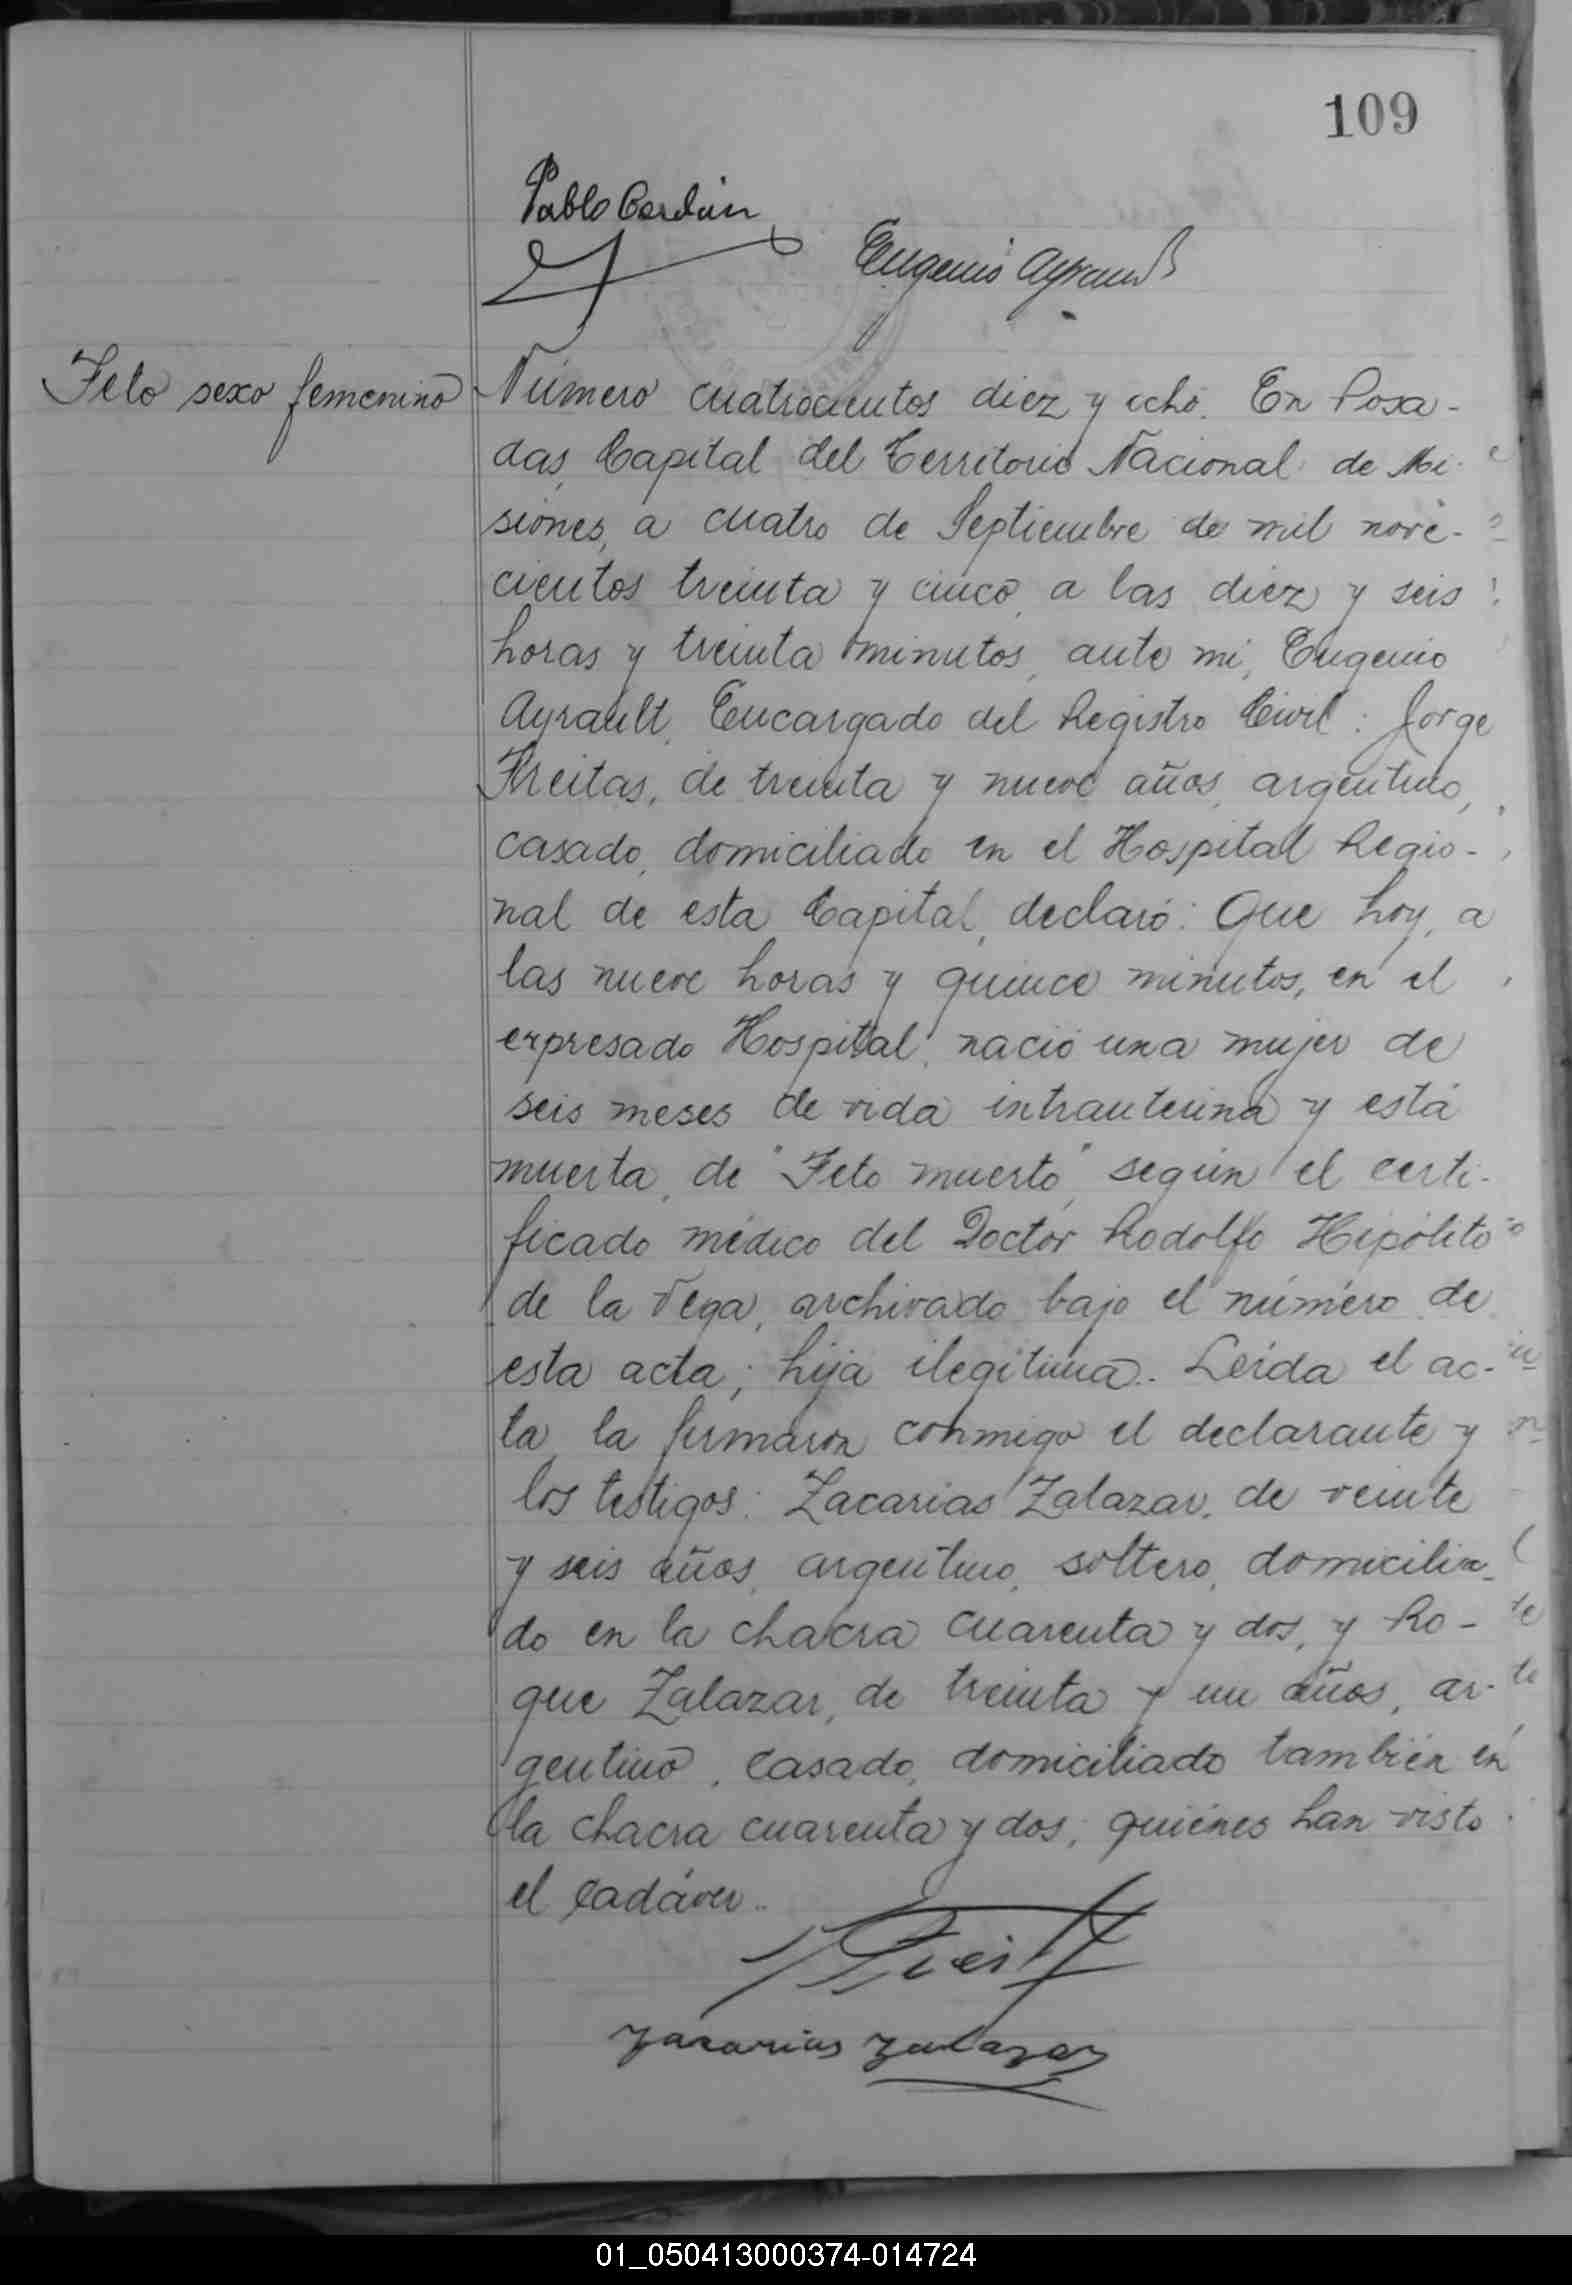 109
Pablo Cerdán
Eugenio Ayrault
Feto sexo femenino
Número cuatrocientos diez y ocho. En Posa-
das, Capital del Territorio Nacional de Mi-
siones, a cuatro de Septiembre de mil nove-
cientos treinta y cinco, a las diez y seis
horas y treinta minutos, ante mi, Eugenio
Ayrault, Encargado del Registro Civil: Jorge
Freitas, de treinta y nueve años, argentino,
casado, domiciliado en el Hospital Regio-
nal de esta Capital, declaró: Que hoy, a
las nueve horas y quince minutos, en el
expresado Hospital, nació una mujer de
seis meses de vida intrauterina y está
muerta, de "Feto muerto", según el certi-
ficado médico del Doctor Rodolfo Hipólito
de la Vega, archivado bajo el número de
esta acta; hija ilegitima. Leida el ac-
ta, la firmaron conmigo el declarante y
los testigos: Zacarias Zalazar, de veinte
y seis años, argentino, soltero, domicilia-
do en la chacra cuarenta y dos, y Ro-
que Zalazar, de treinta y un años, ar-
gentino, casado, domiciliado también en
la chacra cuarenta y dos; quiénes han visto
el cadáver..
Zacarias Zalazar
01_050413000374-014724